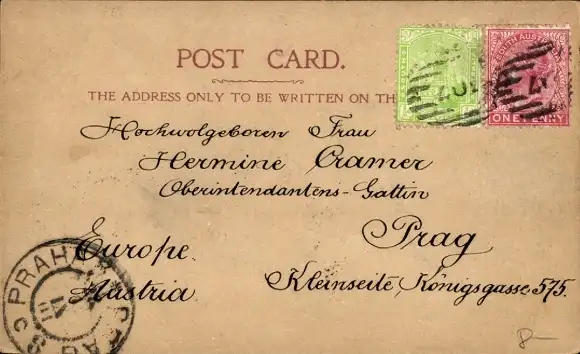 POST CARD.
THE ADDRESS ONLY TO BE WRITTEN ON TH
SOUTH AUSTRA
ONE PENNY
Hochwolgeboren Frau
Hermine Cramer
Oberintendantens-Gattin
Prag
Europe.
Austria
Kleinseite, Königsgasse 575.
PRAHA
PRAG 3
8